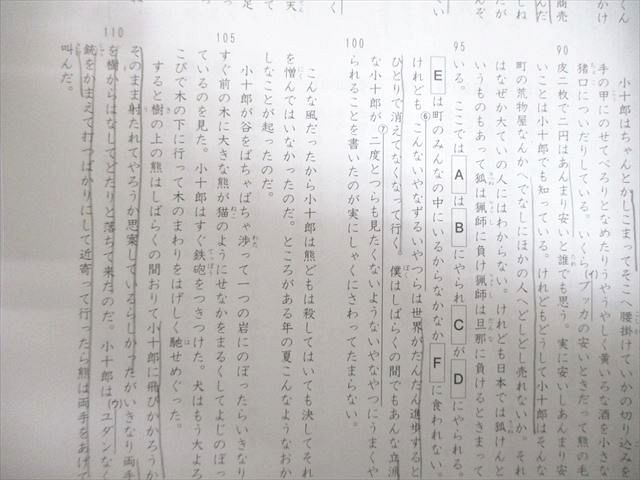 小十郎はちゃんとかしこまってそこへ腰掛けていかの切り込みを
手の甲にのせてべろりとなめたりうやうやしく黄いろな酒を小さな
猪口についだりしている。いくら(イ)ブッカの安いときだって熊の毛
90
皮二枚で二円はあんまり安いと誰でも思う。実に安いしあんまり安
いことは小十郎でも知っている。けれどもどうして小十郎はそんな
町の荒物屋なんかへでなしにほかの人へどしどし売れないか。それ
はなぜか大ていの人にはわからない。けれども日本では狐けんと
いうものもあって狐は猟師に負け猟師は旦那に負けるときまって
95
いる。ここではAはBにやられCがDにやられる。
Eは町のみんなの中にいるからなかなかFに食われない。
けれども⑥こんないやなずるいやつらは世界がだんだん進歩すると
ひとりで消えてなくなって行く。僕はしばらくの間でもあんな立派
な小十郎が⑦二度とつらも見たくないようないやなやつにうまくや
100
られることを書いたのが実にしゃくにさわってたまらない。
こんな風だったから小十郎は熊どもは殺してはいても決してそれ
を憎んではいなかったのだ。ところがある年の夏こんなようなおか
しなことが起ったのだ。
小十郎が谷をばちゃばちゃ渉って一つの岩にのぼったらいきなり
105
すぐ前の木に大きな熊が猫のようにせなかをまるくしてよじのぼっ
ているのを見た。小十郎はすぐ鉄砲をつきつけた。犬はもう大よろ
こびで木の下に行って木のまわりをはげしく馳せめぐった。
すると樹の上の熊はしばらくの間おりて小十郎に飛びかかろうか
そのまま射たれてやろうか思案しているらしかったがいきなり両手
110
を樹からはなしてどたりと落ちて来たのだ。小十郎は(ウ)ユダンなく
銃をかまえて打つばかりにして近寄って行ったら熊は両手をあげて
叫んだ。